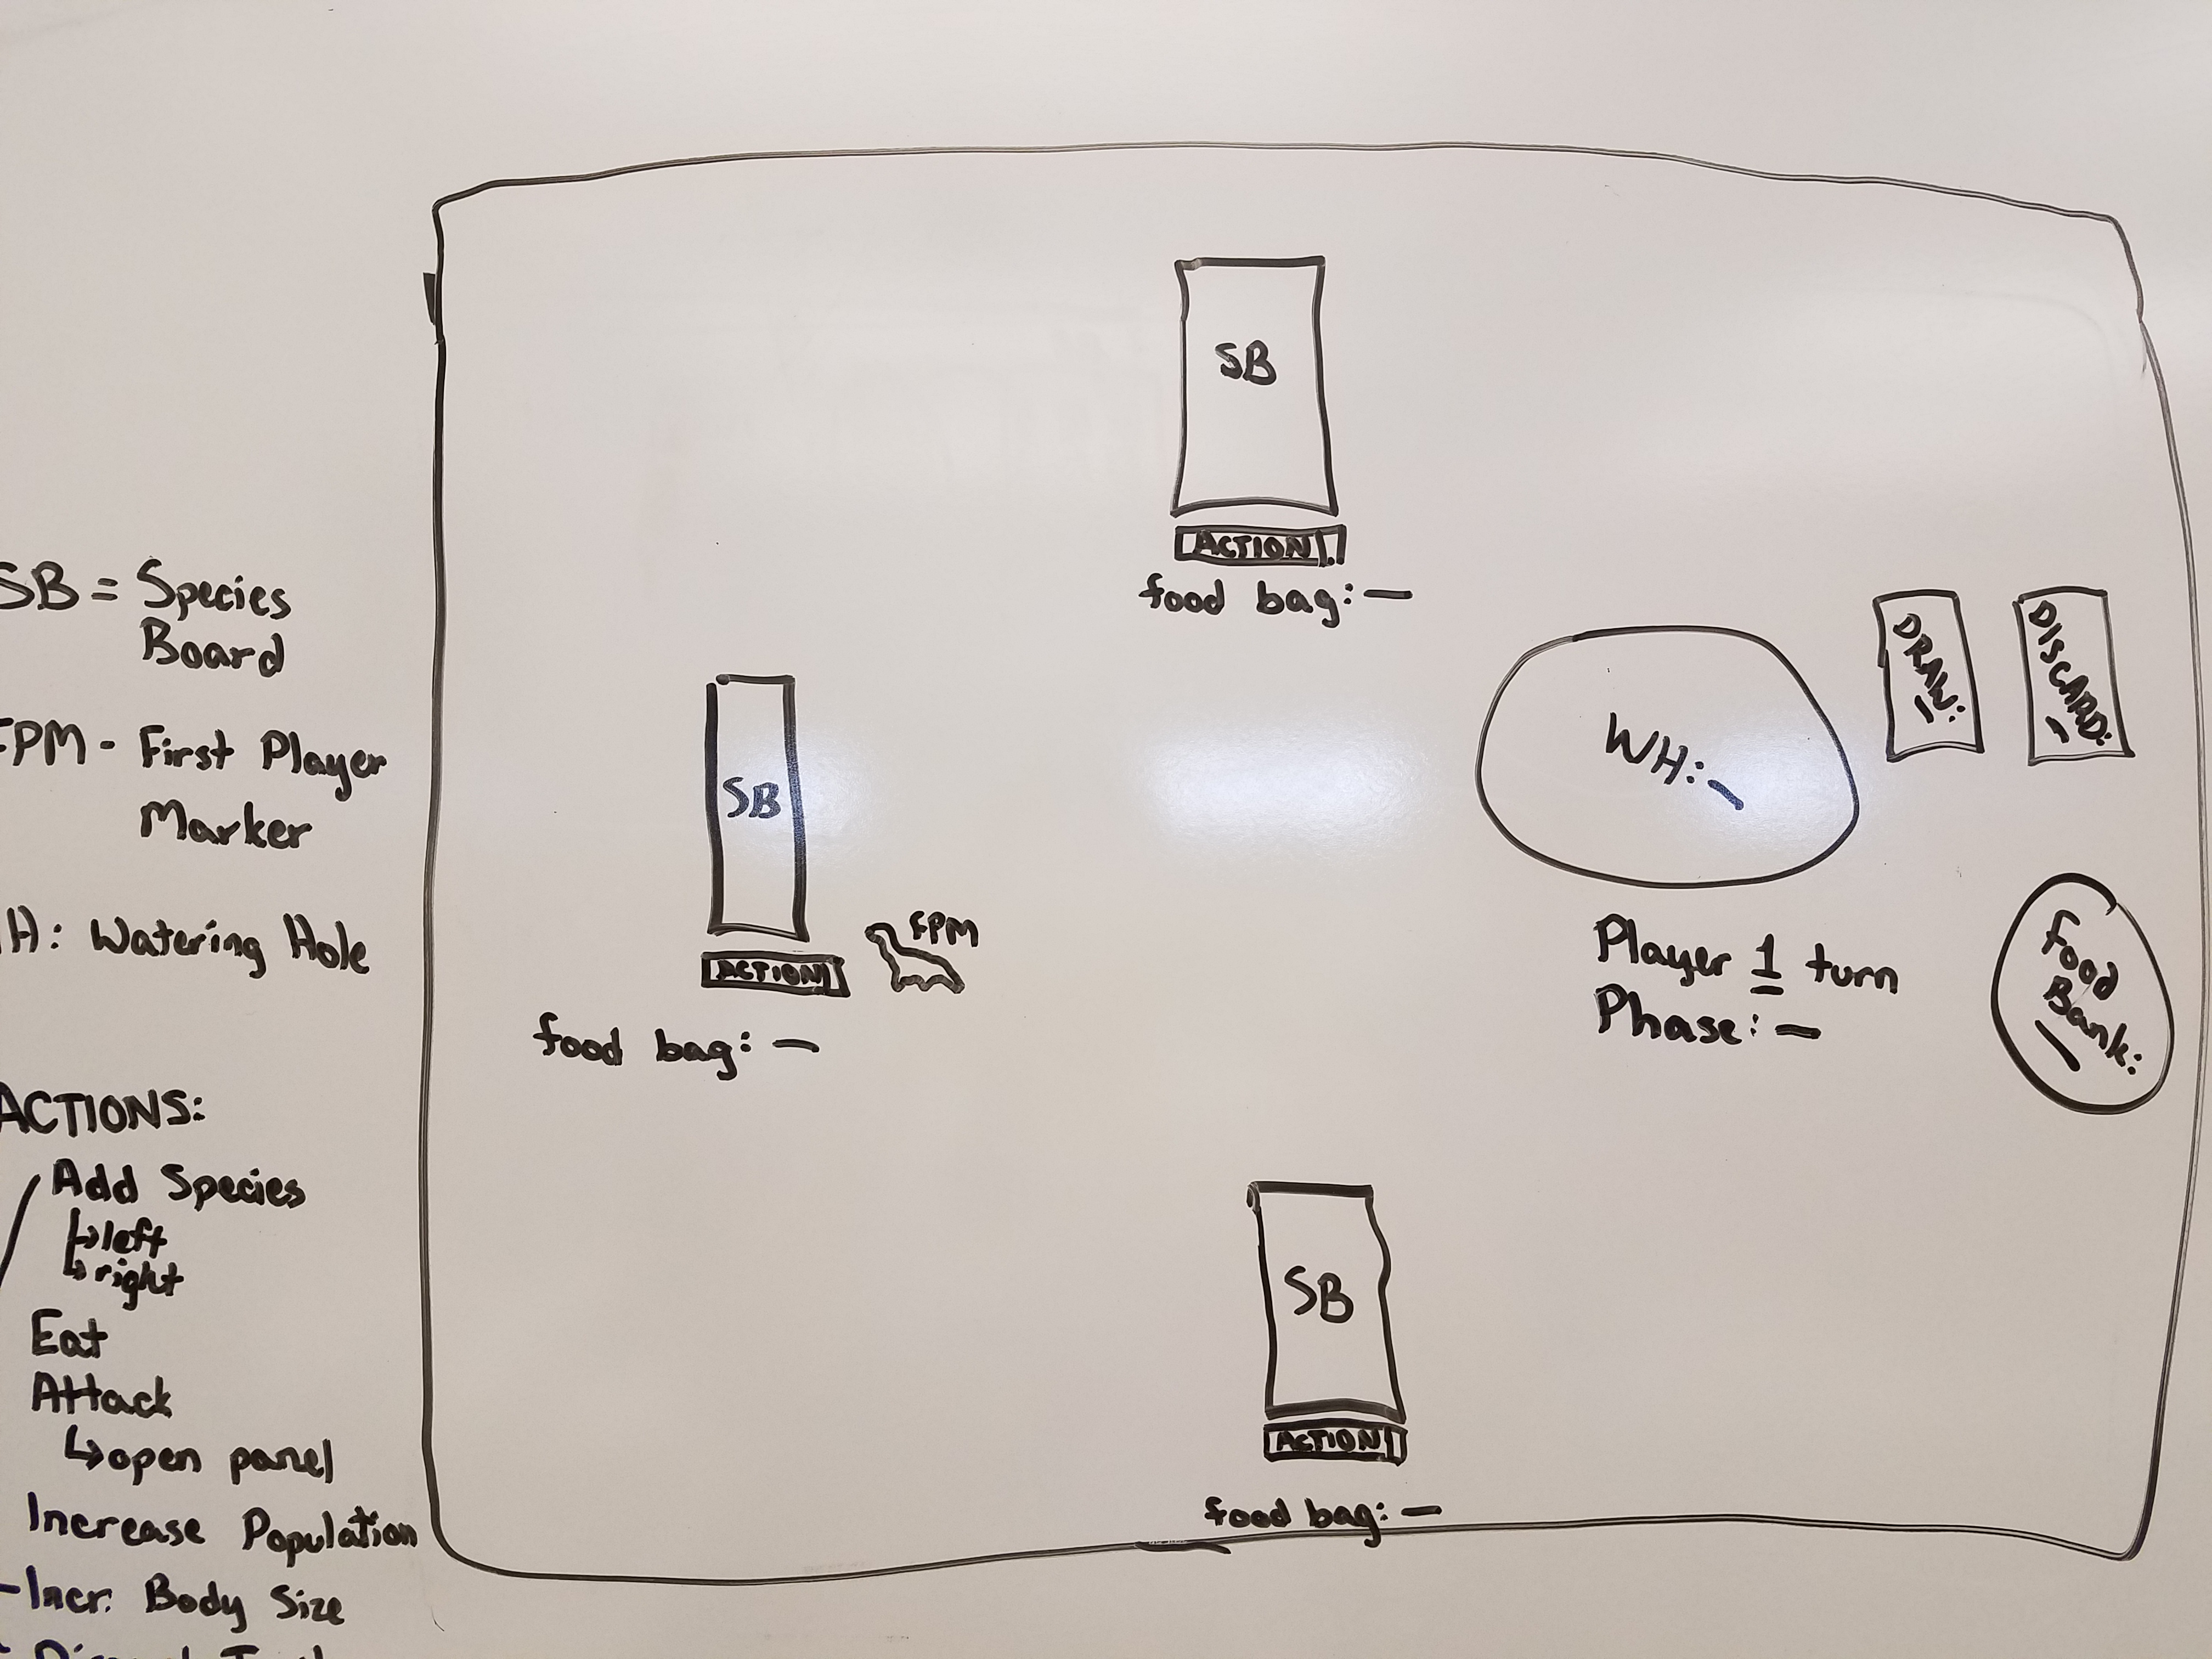 SB = Species
Board
FPM - First Player
Marker
H: Watering Hole
ACTIONS:
Add Species
left
right
Eat
Attack
open panel
Increase Population
Incr. Body Size
SB
ACTION
food bag: —
SB
ACTION
FPM
food bag: —
WH: —
DRAW: —
DISCARD: —
Player 1 turn
Phase: —
Food
Bank: —
SB
ACTION
food bag: —